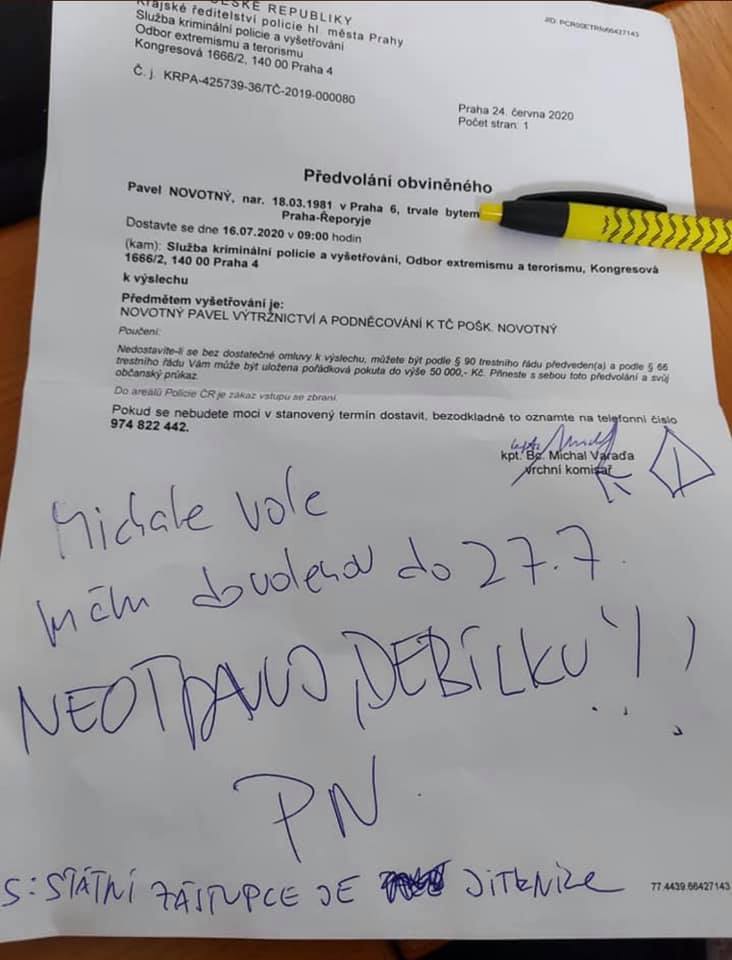 ČESKÉ REPUBLIKY
Krajské ředitelství policie hl. města Prahy
Služba kriminální policie a vyšetřování
Odbor extremismu a terorismu
Kongresová 1666/2, 140 00 Praha 4
Č. j. KRPA-425739-36/TČ-2019-000080
JID: PCR00ETRtv66427143
Praha 24. června 2020
Počet stran: 1
Předvolání obviněného
Pavel NOVOTNÝ, nar. 18.03.1981 v Praha 6, trvale bytem
Praha-Řeporyje
Dostavte se dne 16.07.2020 v 09:00 hodin
(kam): Služba kriminální policie a vyšetřování, Odbor extremismu a terorismu, Kongresová
1666/2, 140 00 Praha 4
k výslechu
Předmětem vyšetřování je:
NOVOTNÝ PAVEL VÝTRŽNICTVÍ A PODNĚCOVÁNÍ K TČ POŠK. NOVOTNÝ
Poučení:
Nedostavíte-li se bez dostatečné omluvy k výslechu, můžete být podle § 90 trestního řádu předveden(a) a podle § 66
trestního řádu Vám může být uložena pořádková pokuta do výše 50 000,- Kč. Přineste s sebou toto předvolání a svůj
občanský průkaz.
Do areálů Policie ČR je zákaz vstupu se zbraní.
Pokud se nebudete moci v stanovený termín dostavit, bezodkladně to oznamte na telefonní číslo
974 822 442.
kpt. Bc. Michal Varaďa
vrchní komisař
Michale vole
mám dovolenou do 27.7.
NEOTRAVUJ, DEBÍLKU!!!
PN.
S: STÁTNÍ ZÁSTUPCE JE JITRNICE
77.4439.66427143